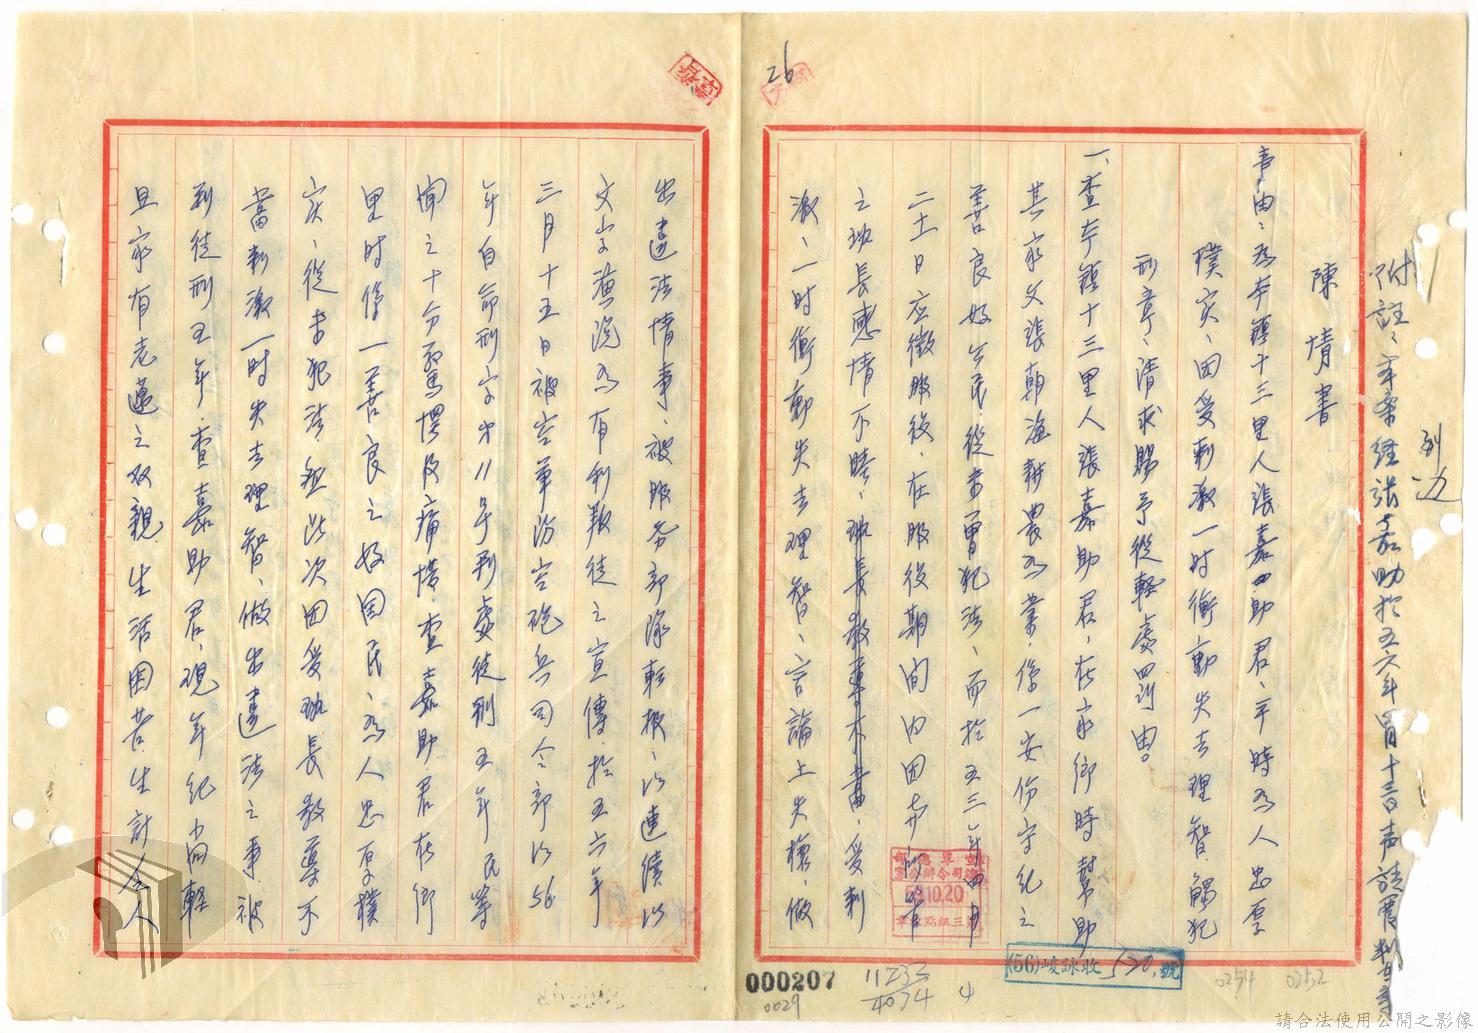 26
到边
附註：本案经張嘉助於五六年十月十三日声請覆判
陳情書
事由：為本鎮十三里人張嘉助君、平時為人忠厚
樸实、因受刺激一时衝動失去理智、觸犯
刑章、請求賜予從輕處罰由
一、查本鎮十三里人張嘉助君、在家鄉時幫助
其家父張朝漁耕農為業、係一安份守纪之
善良好公民、從未曾犯法、而於五三年四月
二十一日应徵服役、在服役期间内因
之班長感情不睦、受刺
激、一时衝動失去理智、言論上失檢、做
出違法情事、被服务部隊転报、以連續以
文字演説為有利叛徒之宣傳、於五六年
三月十五日被空軍防空砲兵司令部以56
年自命刑字才11号判處徒刑五年、民等
闻之十分驚愕及痛惜、查嘉助君在鄉
里时係一善良之好国民、為人忠厚樸
实、從未犯法紀、此次因受班長教導不
當刺激一时失去理智、做出違法之事、被
判徒刑五年、查嘉助君、現年纪尚軽
且家有老邁之双親、生活困苦、生計令人
空軍總部
56.10.20
(56)峻詠收520號
000207
0029
11233
4074
4
0254
0252
請合法使用公開之影像